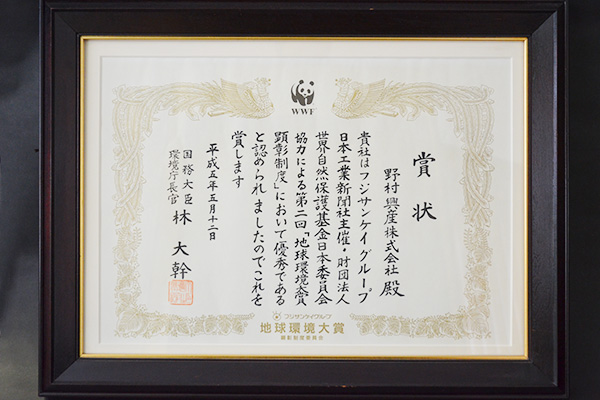 WWF
賞状
野村興産株式会社 殿
貴社はフジサンケイグループ
日本工業新聞社主催・財団法人
世界自然保護基金日本委員会
協力による第二回「地球環境大賞
顕彰制度」において優秀である
と認められましたのでこれを
賞します
平成五年五月十二日
国務大臣
環境庁長官
林 大幹
フジサンケイグループ
地球環境大賞
顕彰制度委員会